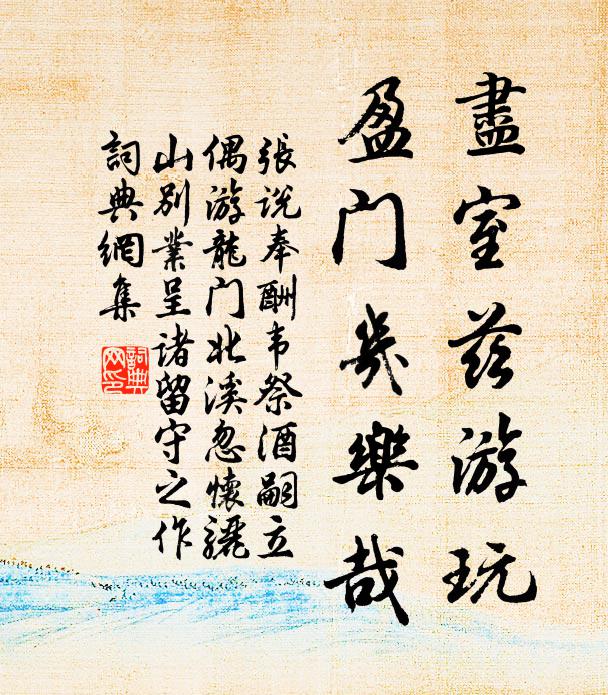 盡室兹游玩
盈门幾樂哉
張说奉酬韦祭酒嗣立
偶游龍门北溪忽懷驪
山别業呈诸留守之作
詞典網集
詞典
网印